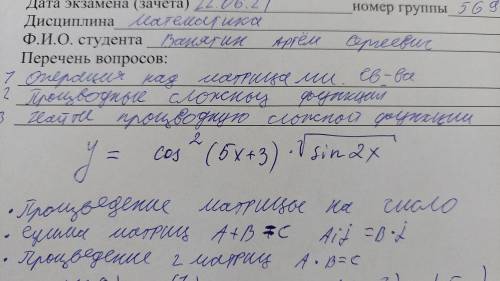 Дата экзамена (зачета) 22.06.21 номер группы 569
Дисциплина Математика
Ф.И.О. студента Ванятин Артём Сергеевич
Перечень вопросов:
1 Операция над матрицами. св-ва
2 Производные сложных функции
3 Найти производную сложной функции
y = cos² (5x+3) · √sin 2x
• Произведение матрицы на число
• Сумма матриц A+B=C Aij =B·j
• Произведение 2 матриц A·B=C